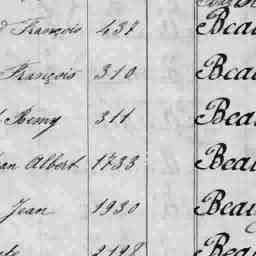 François 437 Beau
François 310 Beau
Remy 311 Beau
Albert 1733 Beau
Jean 1930 Beau
2198 Beau